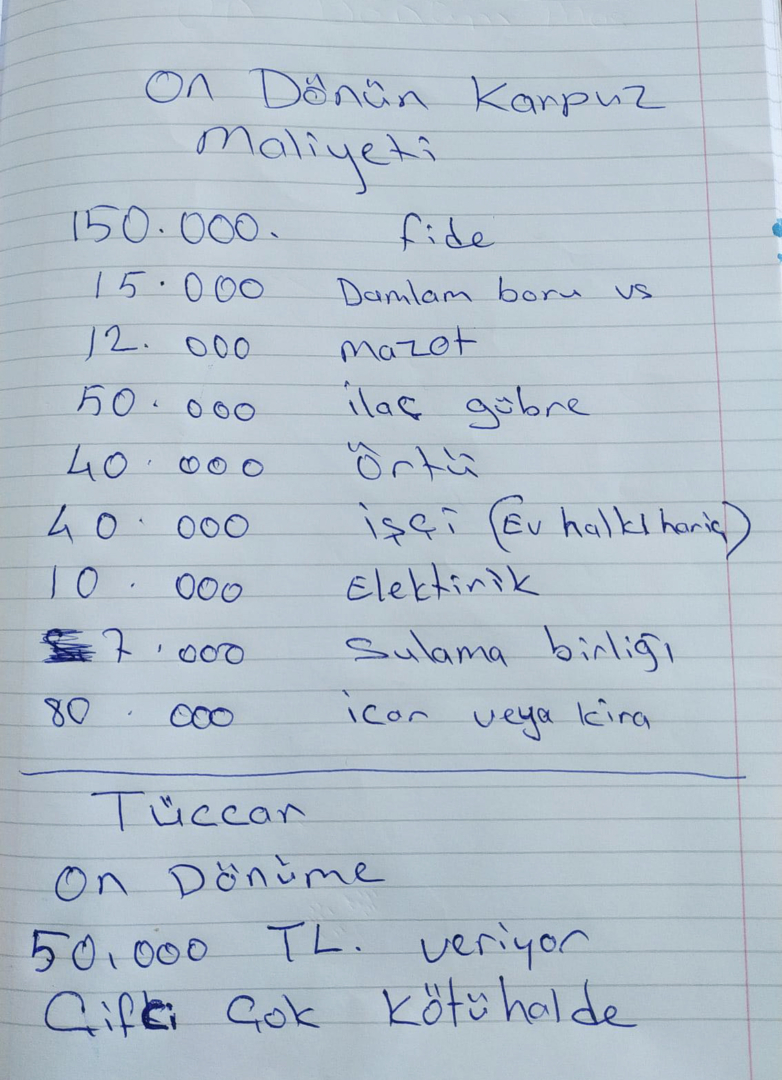 On Dönün Karpuz
Maliyeti
150.000. fide
15.000 Damlam boru vs
12.000 mazot
50.000 ilaç gübre
40.000 Örtü
40.000 işçi (Ev halkı hariç)
10.000 Elektirik
7.000 Sulama birliği
80.000 icar veya kira
Tüccar
On Dönüme
50.000 TL. veriyor
Çiftçi Çok Kötü halde